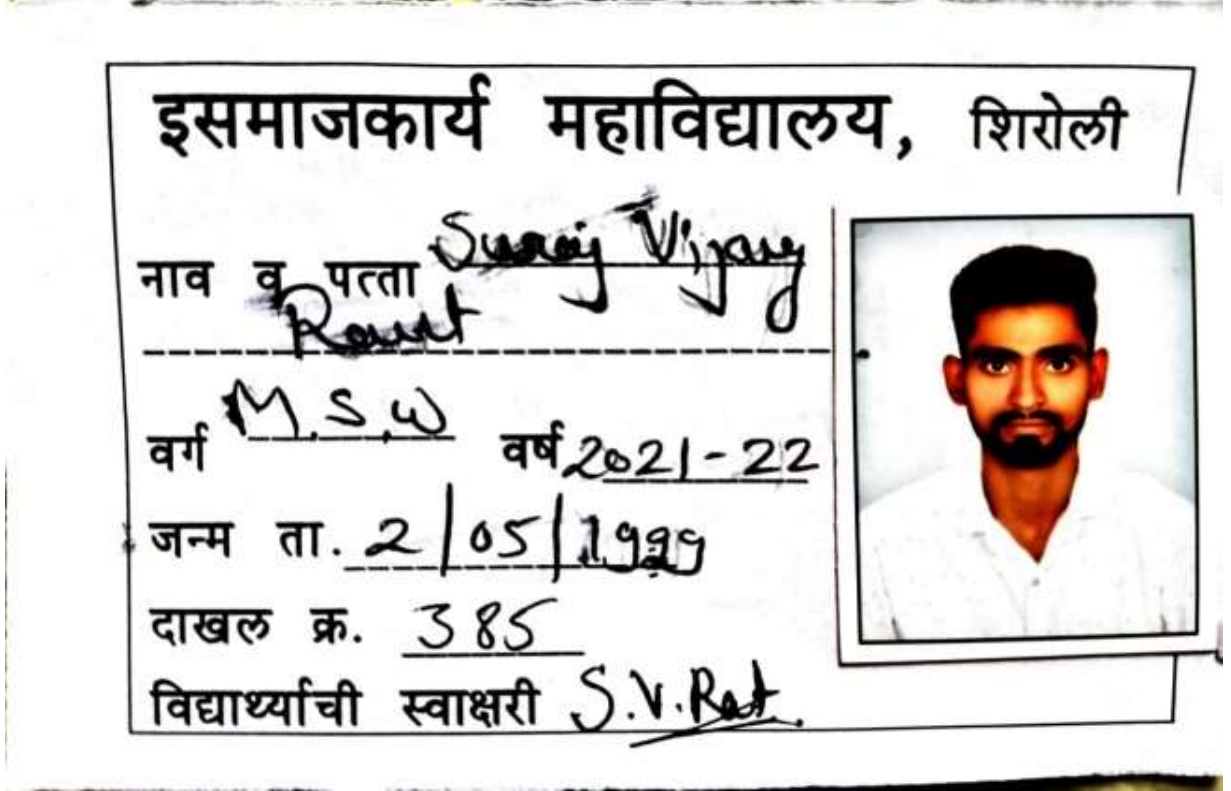 इसमाजकार्य महाविद्यालय, शिरोली
नाव व पत्ता Suraj Vijay
Raut
वर्ग M.S.W वर्ष 2021-22
जन्म ता. 2/05/1999
दाखल क्र. 385
विद्यार्थ्याची स्वाक्षरी S.V.Rat